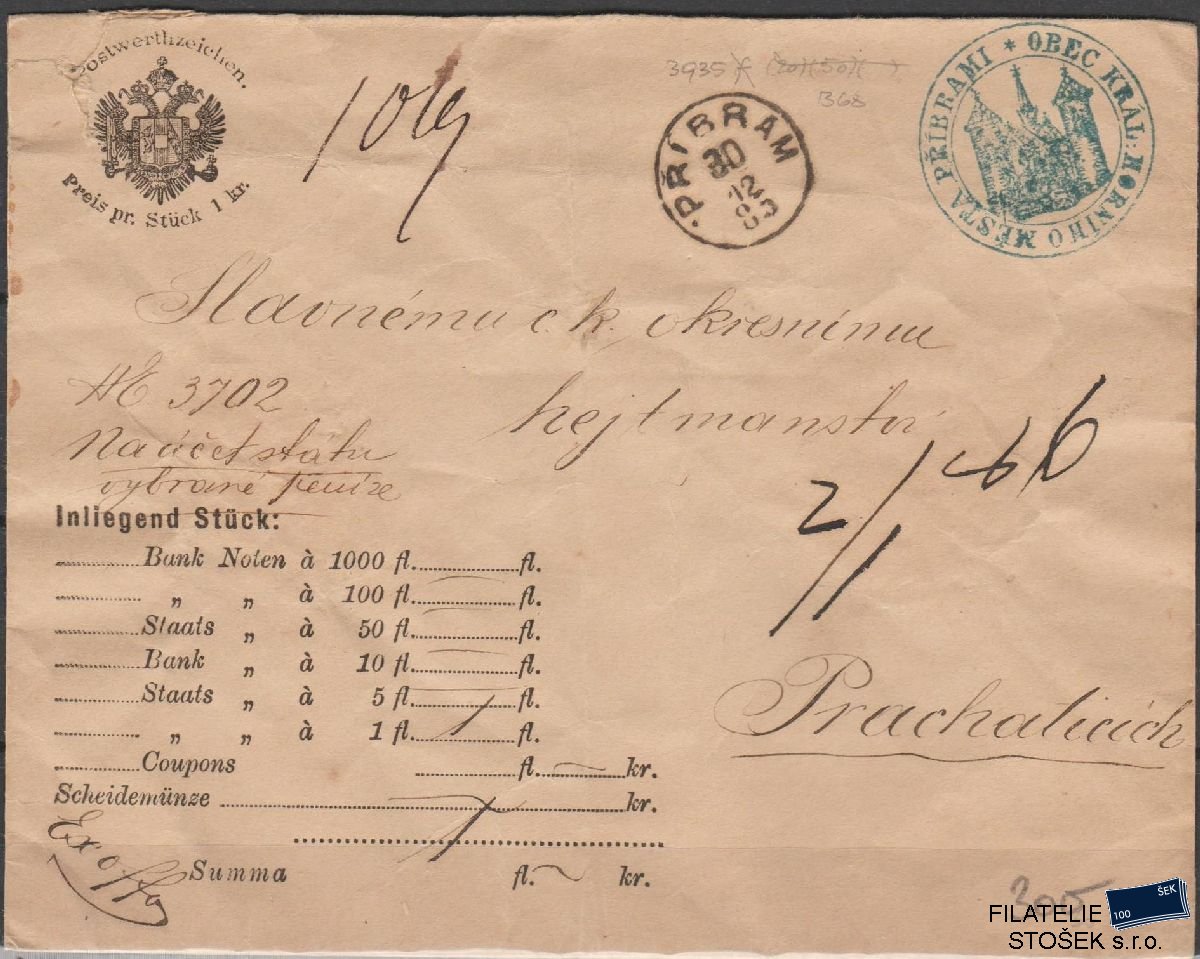 Postwerthzeichen.
Preis pr. Stück 1 kr.
3935 (20)(50)(
B68
PŘÍBRAM
30
12
85
OBEC KRÁL: HORNÍHO MĚSTA PŘÍBRAMI *
Slavnému c. k. okresnímu
hejtmanství
3702
Na účet státu
vybrané peníze
2/1
Inliegend Stück:
Bank Noten à 1000 fl. fl.
„ „ à 100 fl. fl.
Staats „ à 50 fl. fl.
Bank „ à 10 fl. fl.
Staats „ à 5 fl. fl.
„ „ à 1 fl. 1 fl.
Coupons fl. kr.
Scheidemünze kr.
Summa fl. kr.
Ex offo
Prachaticích
200
FILATELIE
STOŠEK s.r.o.
100 ŠEK